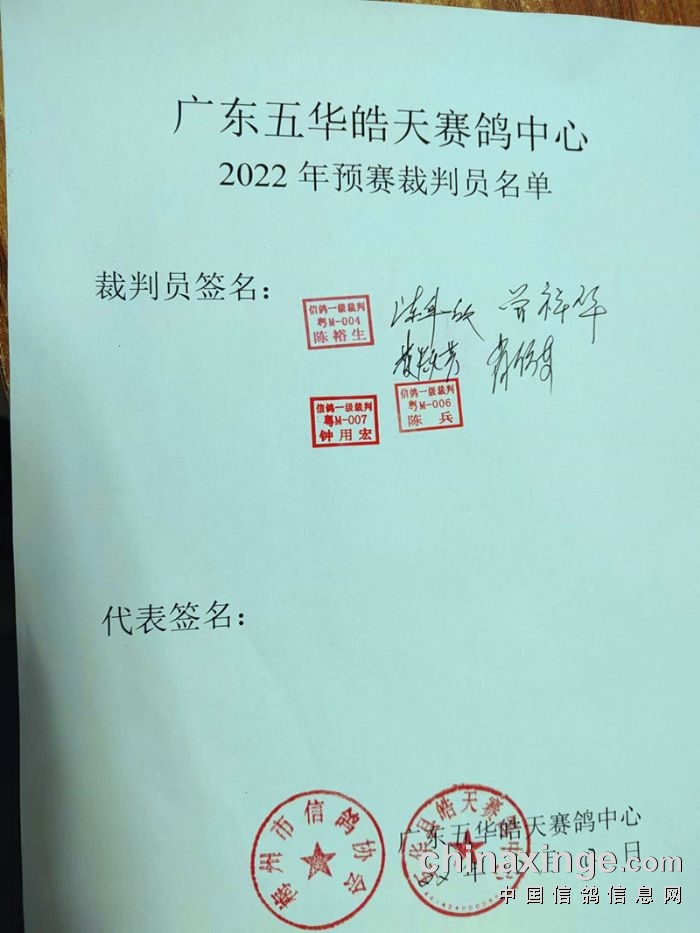 广东五华皓天赛鸽中心
2022年预赛裁判员名单
裁判员签名：
信鸽一级裁判
粤M-004
陈裕生
信鸽一级裁判
粤M-007
钟用宏
信鸽一级裁判
粤M-006
陈兵
代表签名：
梅州市信鸽协会
五华县皓天赛鸽中心
广东五华皓天赛鸽中心
年 月 日
chinaxinge.com
中国信鸽信息网